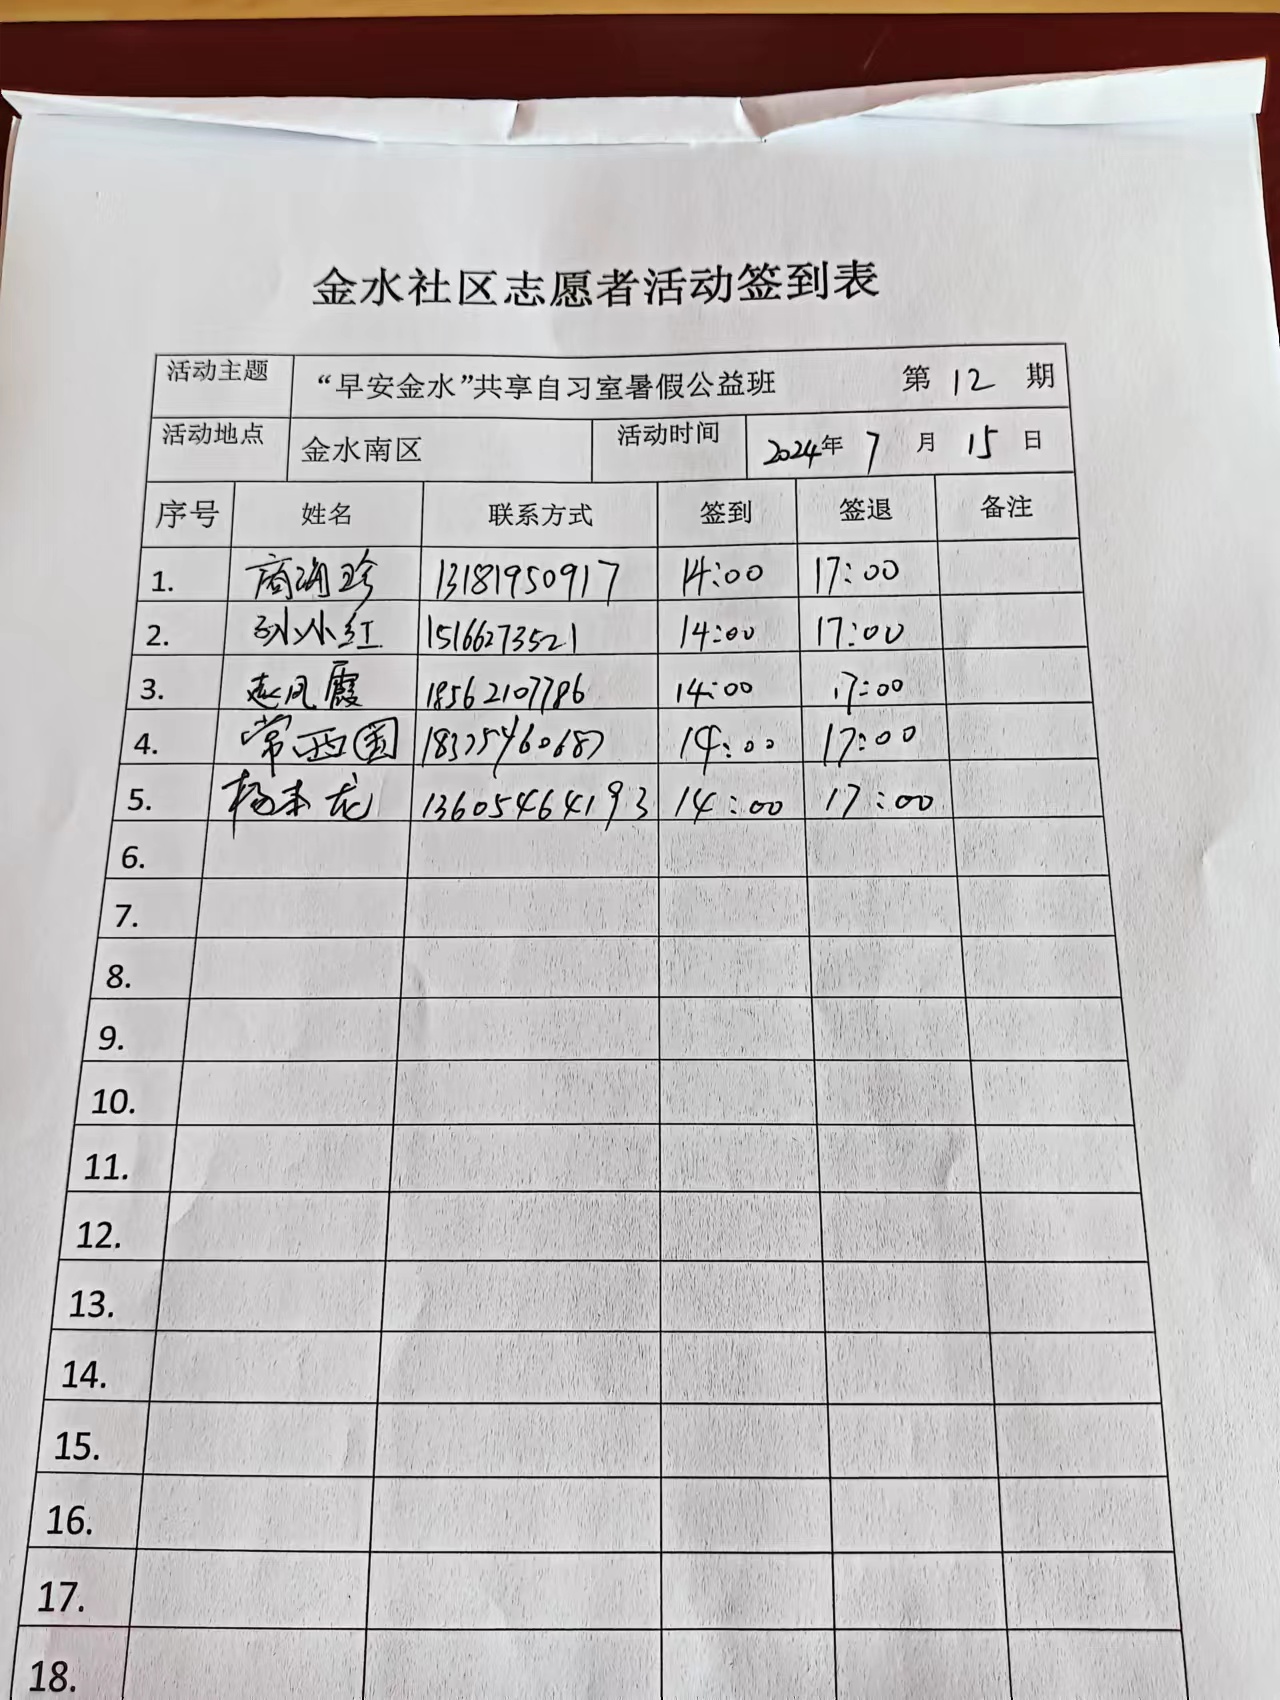 金水社区志愿者活动签到表
活动主题 “早安金水”共享自习室暑假公益班 第 12 期
活动地点 金水南区 活动时间 2024年 7 月 15 日
序号 姓名 联系方式 签到 签退 备注
1. 商海珍 13181950917 14:00 17:00
2. 孙小红 15166273521 14:00 17:00
3. 赵凤霞 18562107786 14:00 17:00
4. 常西国 14:00 17:00
5. 杨本龙 13605464193 14:00 17:00
6.
7.
8.
9.
10.
11.
12.
13.
14.
15.
16.
17.
18.